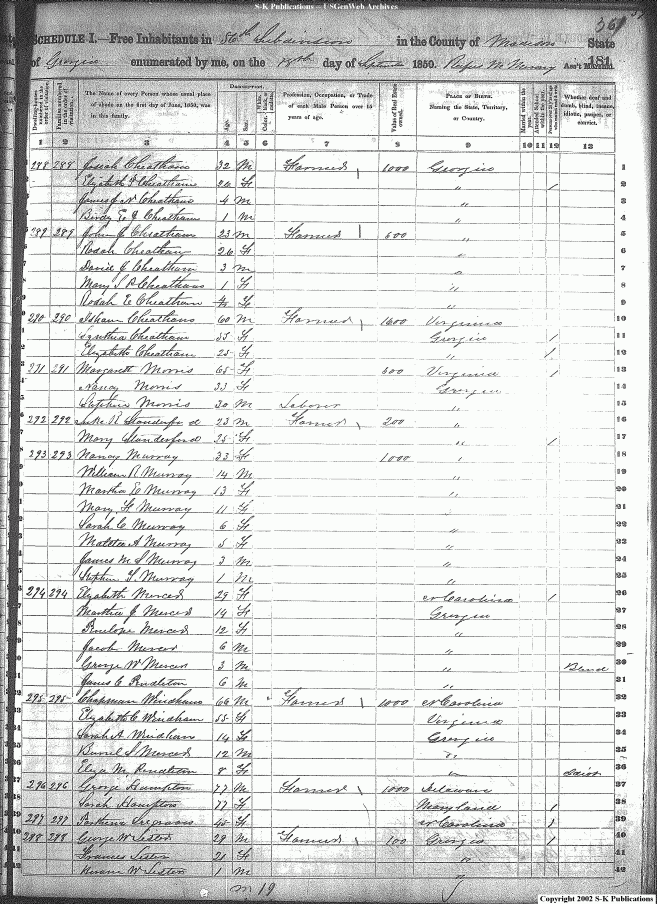 S-K Publications — USGenWeb Archives
361
SCHEDULE I.—Free Inhabitants in 86th Subdivision in the County of Marion State
of Georgia enumerated by me, on the day of 1850. Ass't Marshal.
181
Dwelling-houses numbered in the order of visitation.
Families numbered in the order of visitation.
The Name of every Person whose usual place of abode on the first day of June, 1850, was in this family.
DESCRIPTION.
Age.
Sex.
Color.
Profession, Occupation, or Trade of each Male Person over 15 years of age.
Value of Real Estate owned.
PLACE OF BIRTH. Naming the State, Territory, or Country.
Married within the year.
Whether deaf and dumb, blind, insane, idiotic, pauper, or convict.
1 2 3 4 5 6 7 8 9 10 11 12 13
288 288 Josiah Cheatham 32 M Farmer 1000 Georgia 1
Elizabeth F Cheatham 24 F " / 2
James J N Cheatham 4 M " 3
Birdy E J Cheatham 1 M " 4
289 289 John C Cheatham 23 M Farmer 500 " 5
Rodah Cheatham 26 F " 6
David J Cheatham 3 M " 7
Mary S P Cheatham 1 F " 8
Rodah E Cheatham F " 9
290 290 Isham Cheatham 60 M Farmer 1600 Virginia 10
Cynthia Cheatham 55 F Georgia / 11
Elizabeth Cheatham 25 F " / 12
291 291 Margarett Morris 65 F 500 Virginia / 13
Nancy Morris 33 F Georgia 14
Stephen Morris 30 M Laborer " 15
292 292 Luke R Standeford 23 M Farmer 200 " 16
Mary Standerford 25 F " / 17
293 293 Nancy Murray 33 F 1000 " 18
William R Murray 14 M " 19
Martha E Murray 13 F " 20
Mary F Murray 11 F " 21
Sarah C Murray 6 F " 22
Malissa A Murray 5 F " 23
James M S Murray 3 M " 24
Stephen T Murray 1 M " 25
294 294 Elizabeth Mercer 29 F N Carolina / 26
Martha J Mercer 14 F Georgia 27
Penelope Mercer 12 F " 28
Jacob Mercer 6 M " 29
George W Mercer 3 M " Blind 30
James C Pendleton 6 M " 31
295 295 Chapman Windham 66 M Farmer 1000 N Carolina 32
Elizabeth C Windham 55 F Virginia 33
Sarah A Windham 14 F Georgia 34
Burrel S Mercer 12 M " 35
Eliza M Pendleton 8 F " Idiot 36
296 296 George Hampton 77 M Farmer 1000 Delaware 37
Sarah Hampton 77 F Maryland / 38
297 297 45 F N Carolina / 39
298 298 George W Lester 29 M Farmer 100 Georgia / 40
Frances Lester 21 F " 41
Lester 1 M " 42
m 19
Copyright 2002 S-K Publications